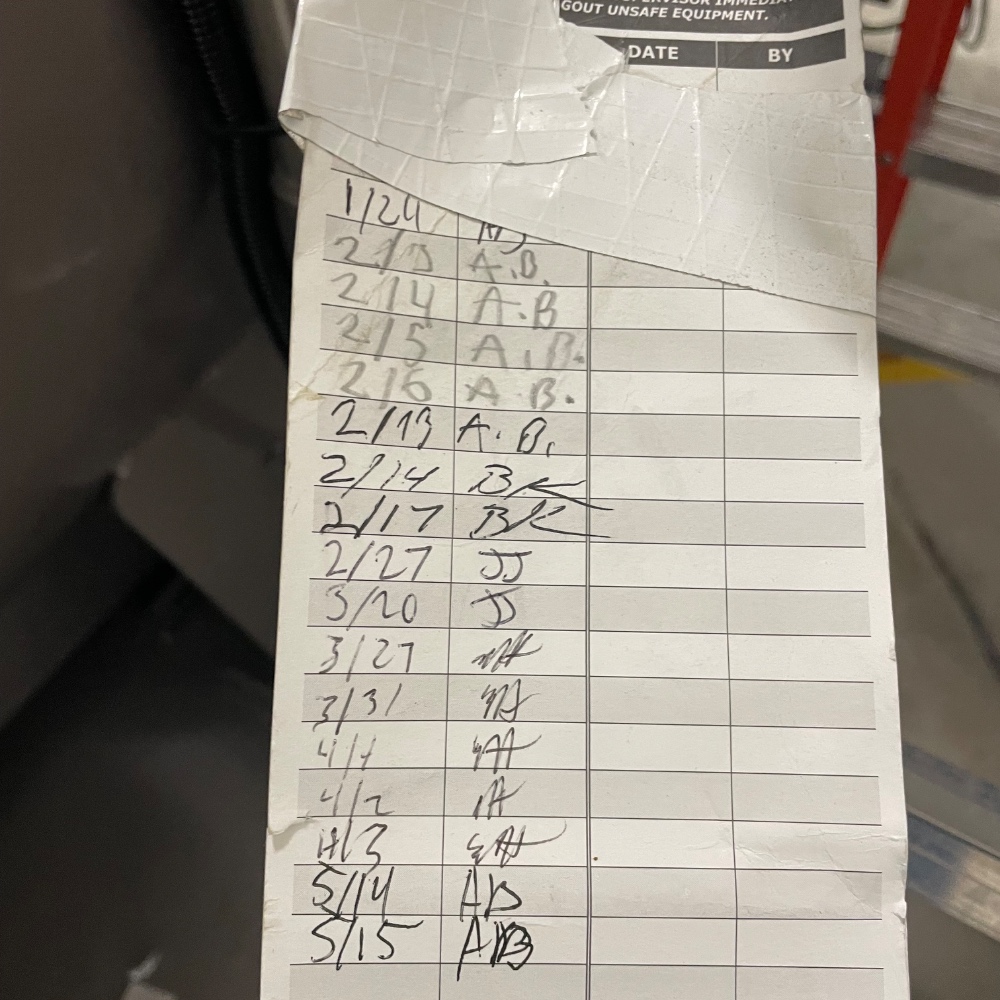 GOUT UNSAFE EQUIPMENT.
DATE BY
1/24
2/3 A.B.
2/14 A.B
2/5 A.B.
2/6 A B.
2/13 A.B.
2/14 BK
2/17 BK
2/27 JJ
3/20 JJ
3/27
3/31
4/1
4/2
4/3
5/14 AB
5/15 AB